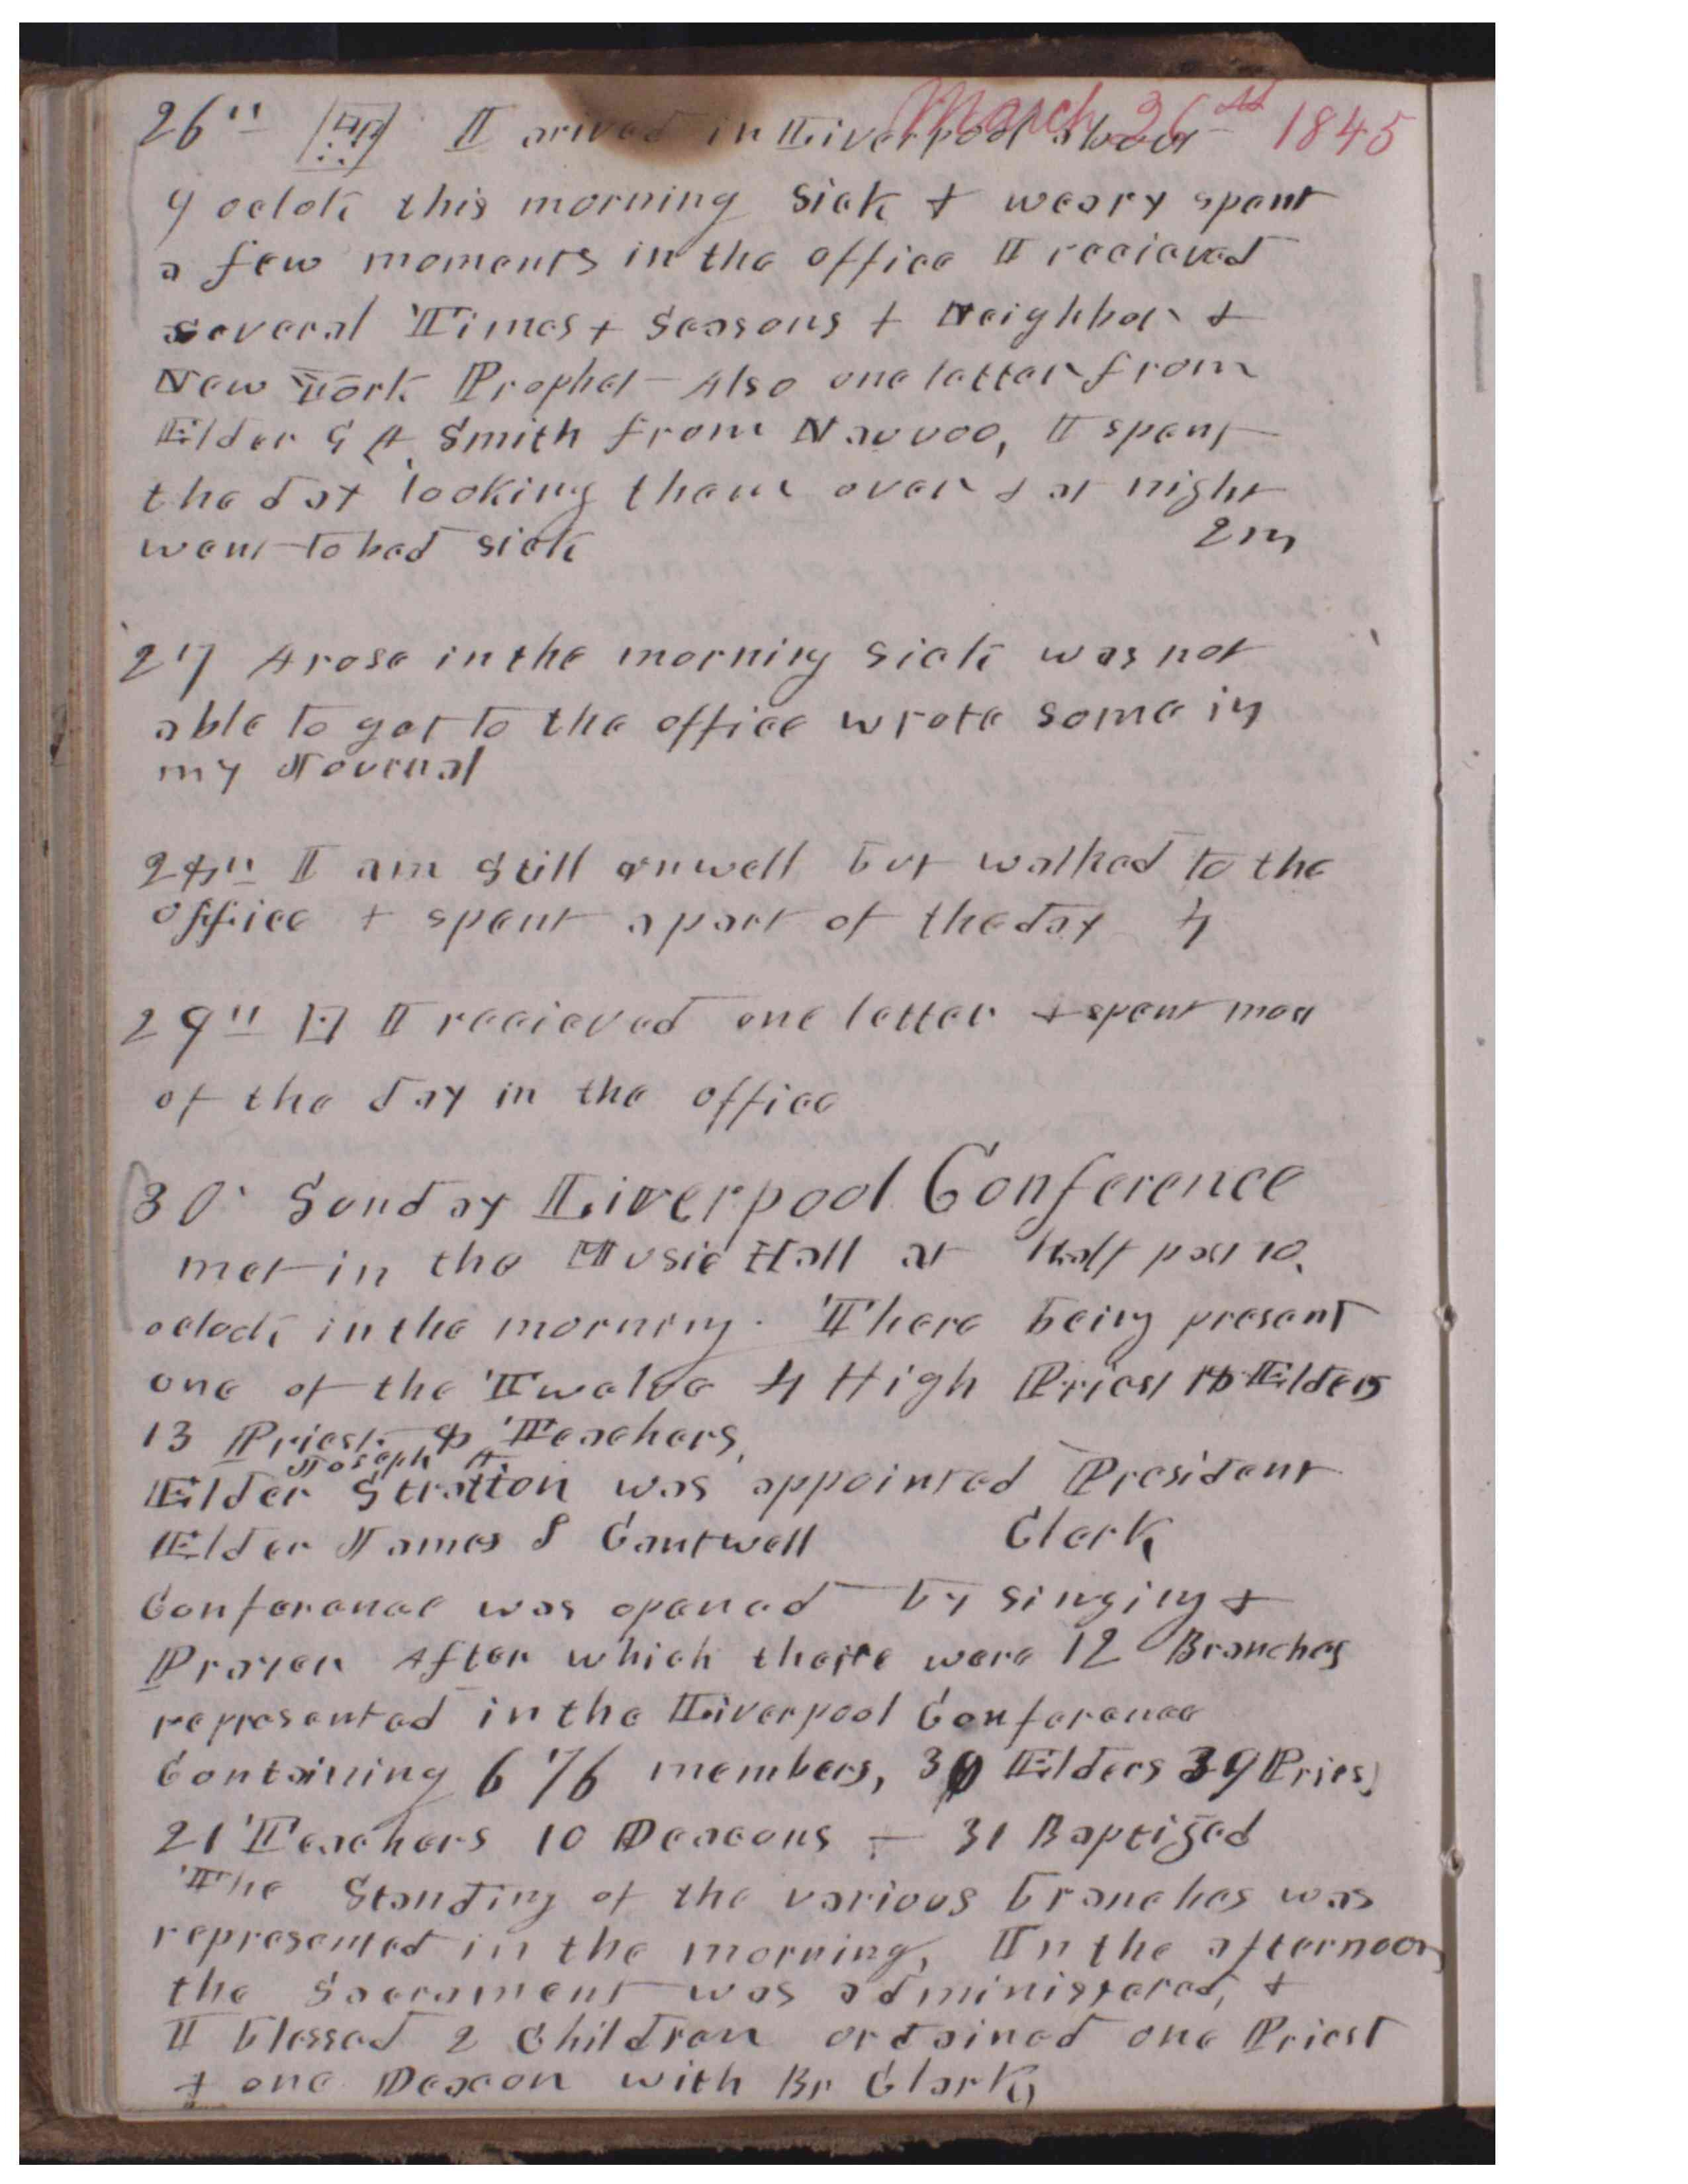 March 26th 1845
26th I arived in Liverpool about
4 oclok this morning sick & weary spent
a few moments in the office I recieved
several Times & Seasons & Neighbor &
New York Prophet Also one letter from
Elder G A Smith from Nauvoo, I spent
the day looking them over & at night
went to bed sick 2 m
27 Arose in the morning sick was not
able to get to the office wrote some in
my Journal
28th I am still unwell but walked to the
office & spent a part of the day 4
29th I recieved one letter & spent most
of the day in the office
30th Sunday Liverpool Conference
met in the Music Hall at half past 10
oclock in the morning. There being present
one of the Twelve 4 High Priest Elders
13 Priest Teachers,
Joseph A.
Elder Stratton was appointed President
Elder James S Cantwell Clerk
Conference was opened by singing &
Prayer After which there were 12 Branches
represented in the Liverpool Conference
Containing 676 members, Elders 39 Priest
21 Teachers 10 Deacons – 31 Baptized
The Standing of the various branches was
represented in the morning, In the afternoon
the Sacrament was administered, &
I blessed 2 Children ordained one Priest
& one Deacon with Br Clark,